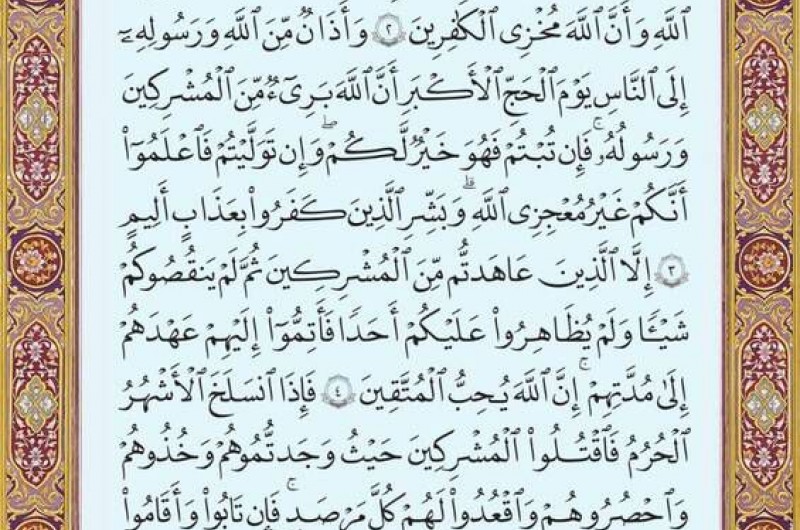 ٱللَّهِ وَأَنَّ ٱللَّهَ مُخْزِى ٱلْكَٰفِرِينَ ٢ وَأَذَٰنٌ مِّنَ ٱللَّهِ وَرَسُولِهِۦٓ
إِلَى ٱلنَّاسِ يَوْمَ ٱلْحَجِّ ٱلْأَكْبَرِ أَنَّ ٱللَّهَ بَرِىٓءٌ مِّنَ ٱلْمُشْرِكِينَ
وَرَسُولُهُۥ ۚ فَإِن تُبْتُمْ فَهُوَ خَيْرٌ لَّكُمْ ۖ وَإِن تَوَلَّيْتُمْ فَٱعْلَمُوٓا۟
أَنَّكُمْ غَيْرُ مُعْجِزِى ٱللَّهِ ۗ وَبَشِّرِ ٱلَّذِينَ كَفَرُوا۟ بِعَذَابٍ أَلِيمٍ
٣ إِلَّا ٱلَّذِينَ عَٰهَدتُّم مِّنَ ٱلْمُشْرِكِينَ ثُمَّ لَمْ يَنقُصُوكُمْ
شَيْـًٔا وَلَمْ يُظَٰهِرُوا۟ عَلَيْكُمْ أَحَدًا فَأَتِمُّوٓا۟ إِلَيْهِمْ عَهْدَهُمْ
إِلَىٰ مُدَّتِهِمْ ۚ إِنَّ ٱللَّهَ يُحِبُّ ٱلْمُتَّقِينَ ٤ فَإِذَا ٱنسَلَخَ ٱلْأَشْهُرُ
ٱلْحُرُمُ فَٱقْتُلُوا۟ ٱلْمُشْرِكِينَ حَيْثُ وَجَدتُّمُوهُمْ وَخُذُوهُمْ
وَٱحْصُرُوهُمْ وَٱقْعُدُوا۟ لَهُمْ كُلَّ مَرْصَدٍ ۚ فَإِن تَابُوا۟ وَأَقَامُوا۟